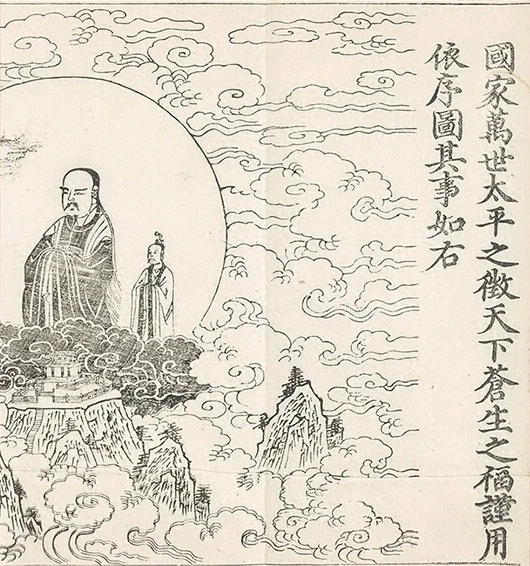 國家萬世太平之徵天下蒼生之福謹用
依序圖其事如右